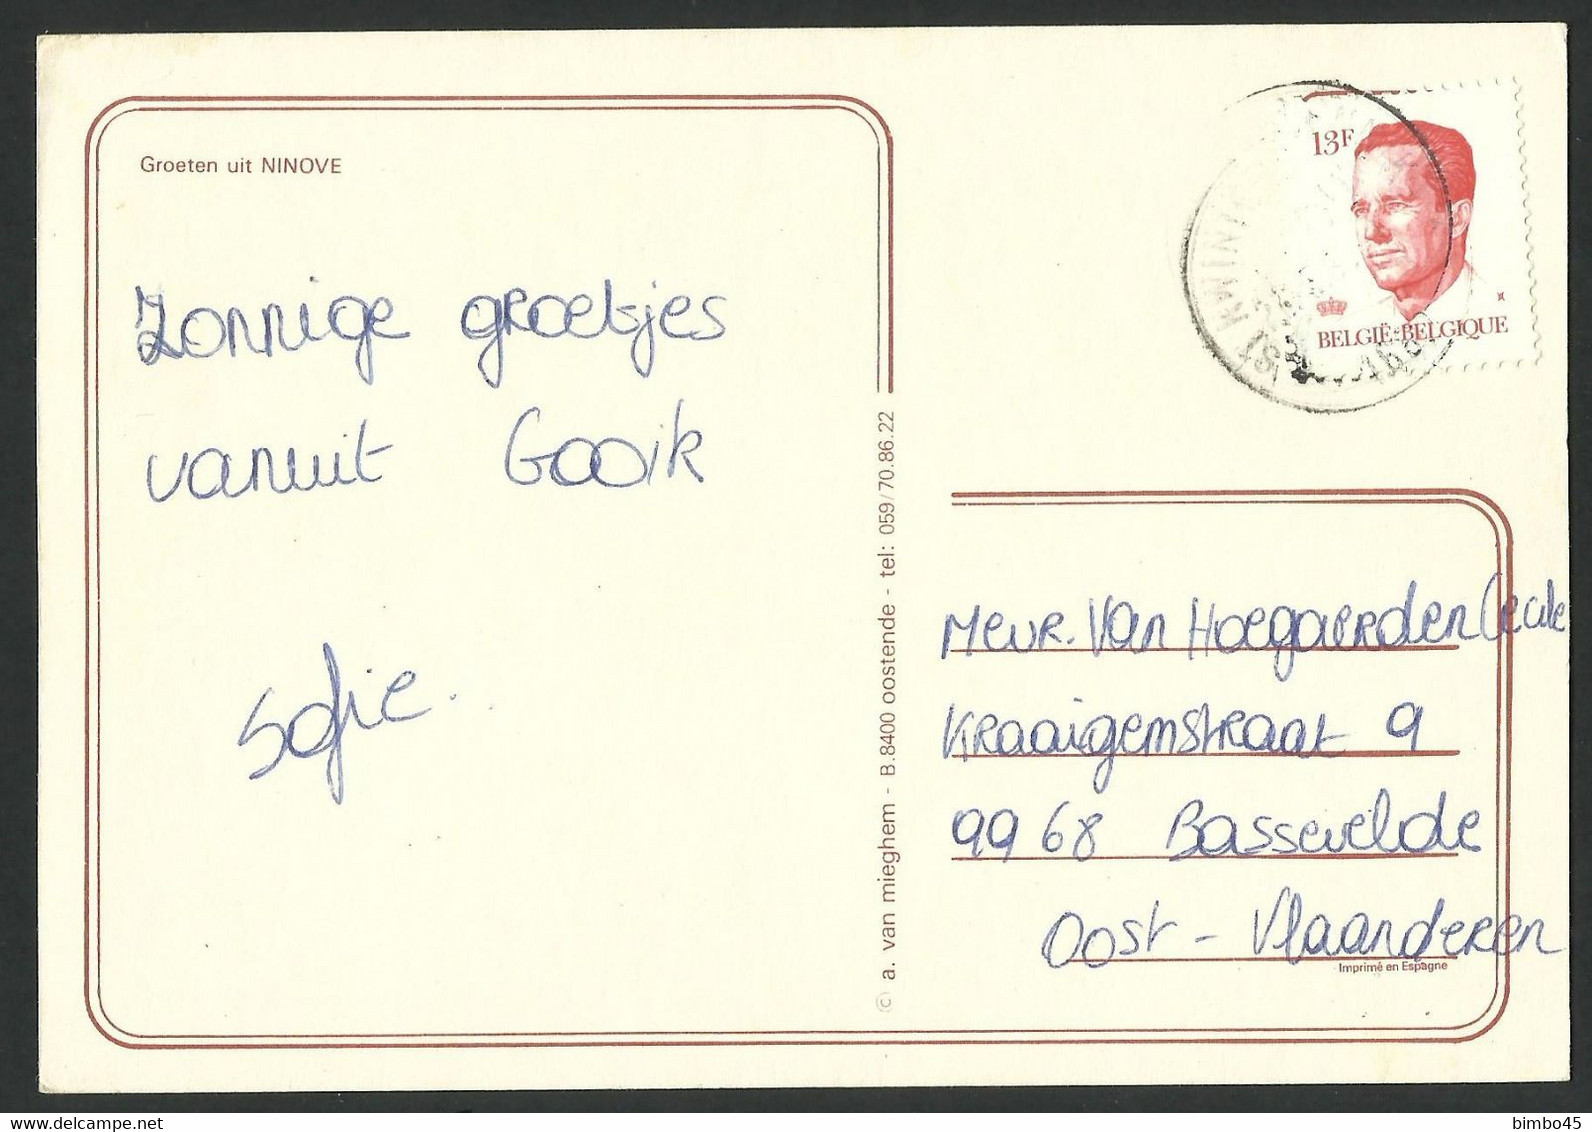 Groeten uit NINOVE
Zonnige groetjes
vanuit Gooik
Sofie.
© a. van mieghem - B.8400 oostende - tel: 059/70.86.22
13F
BELGIË-BELGIQUE
Mevr. Van Hoegaerden Cecile
Kraaigemstraat 9
9968 Bassevelde
Oost - Vlaanderen
Imprimé en Espagne
www.delcampe.net
bimbo45